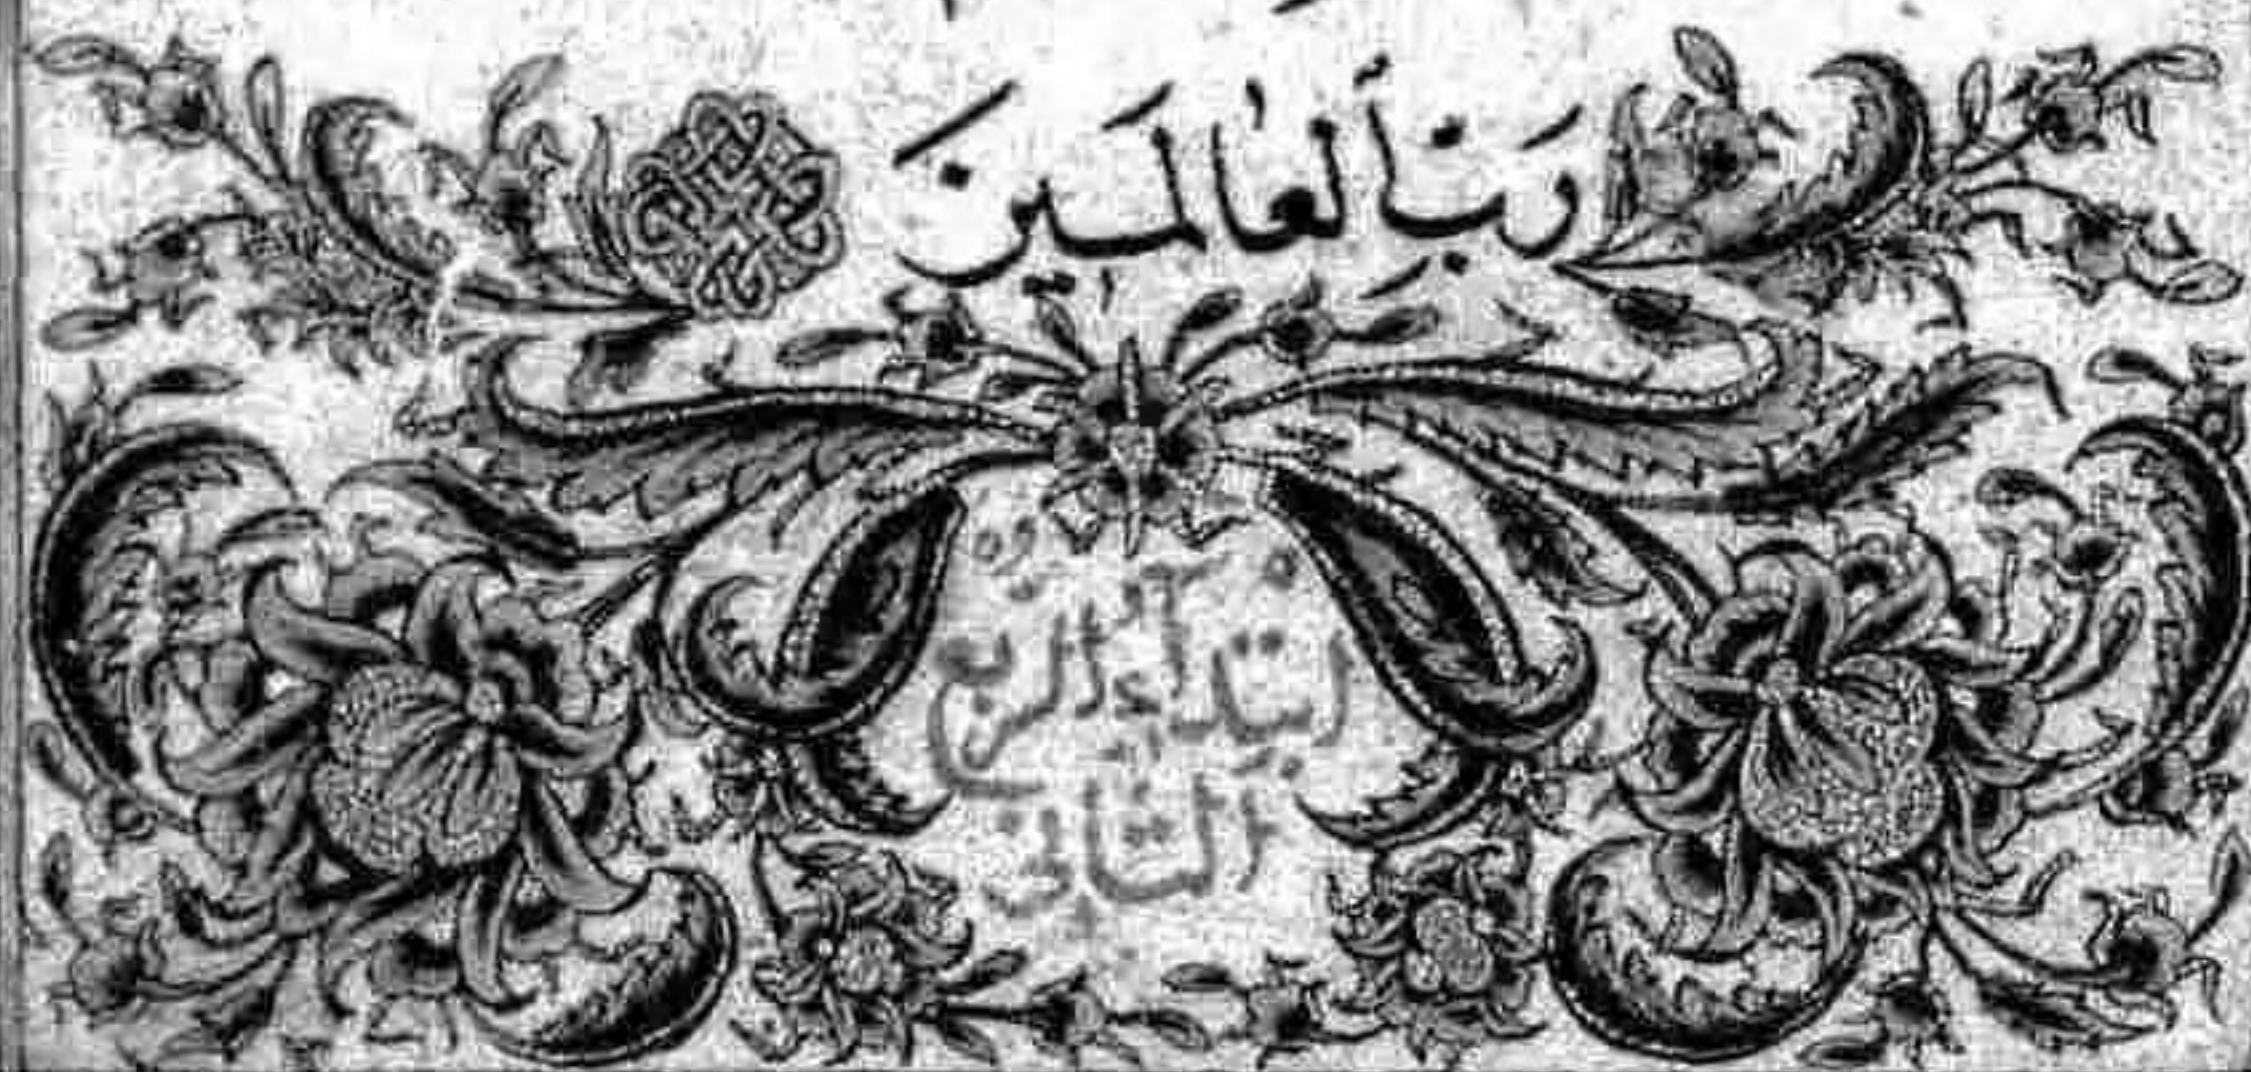 رَبِّ الْعَالَمِينَ
ابتداء الربع
الثاني